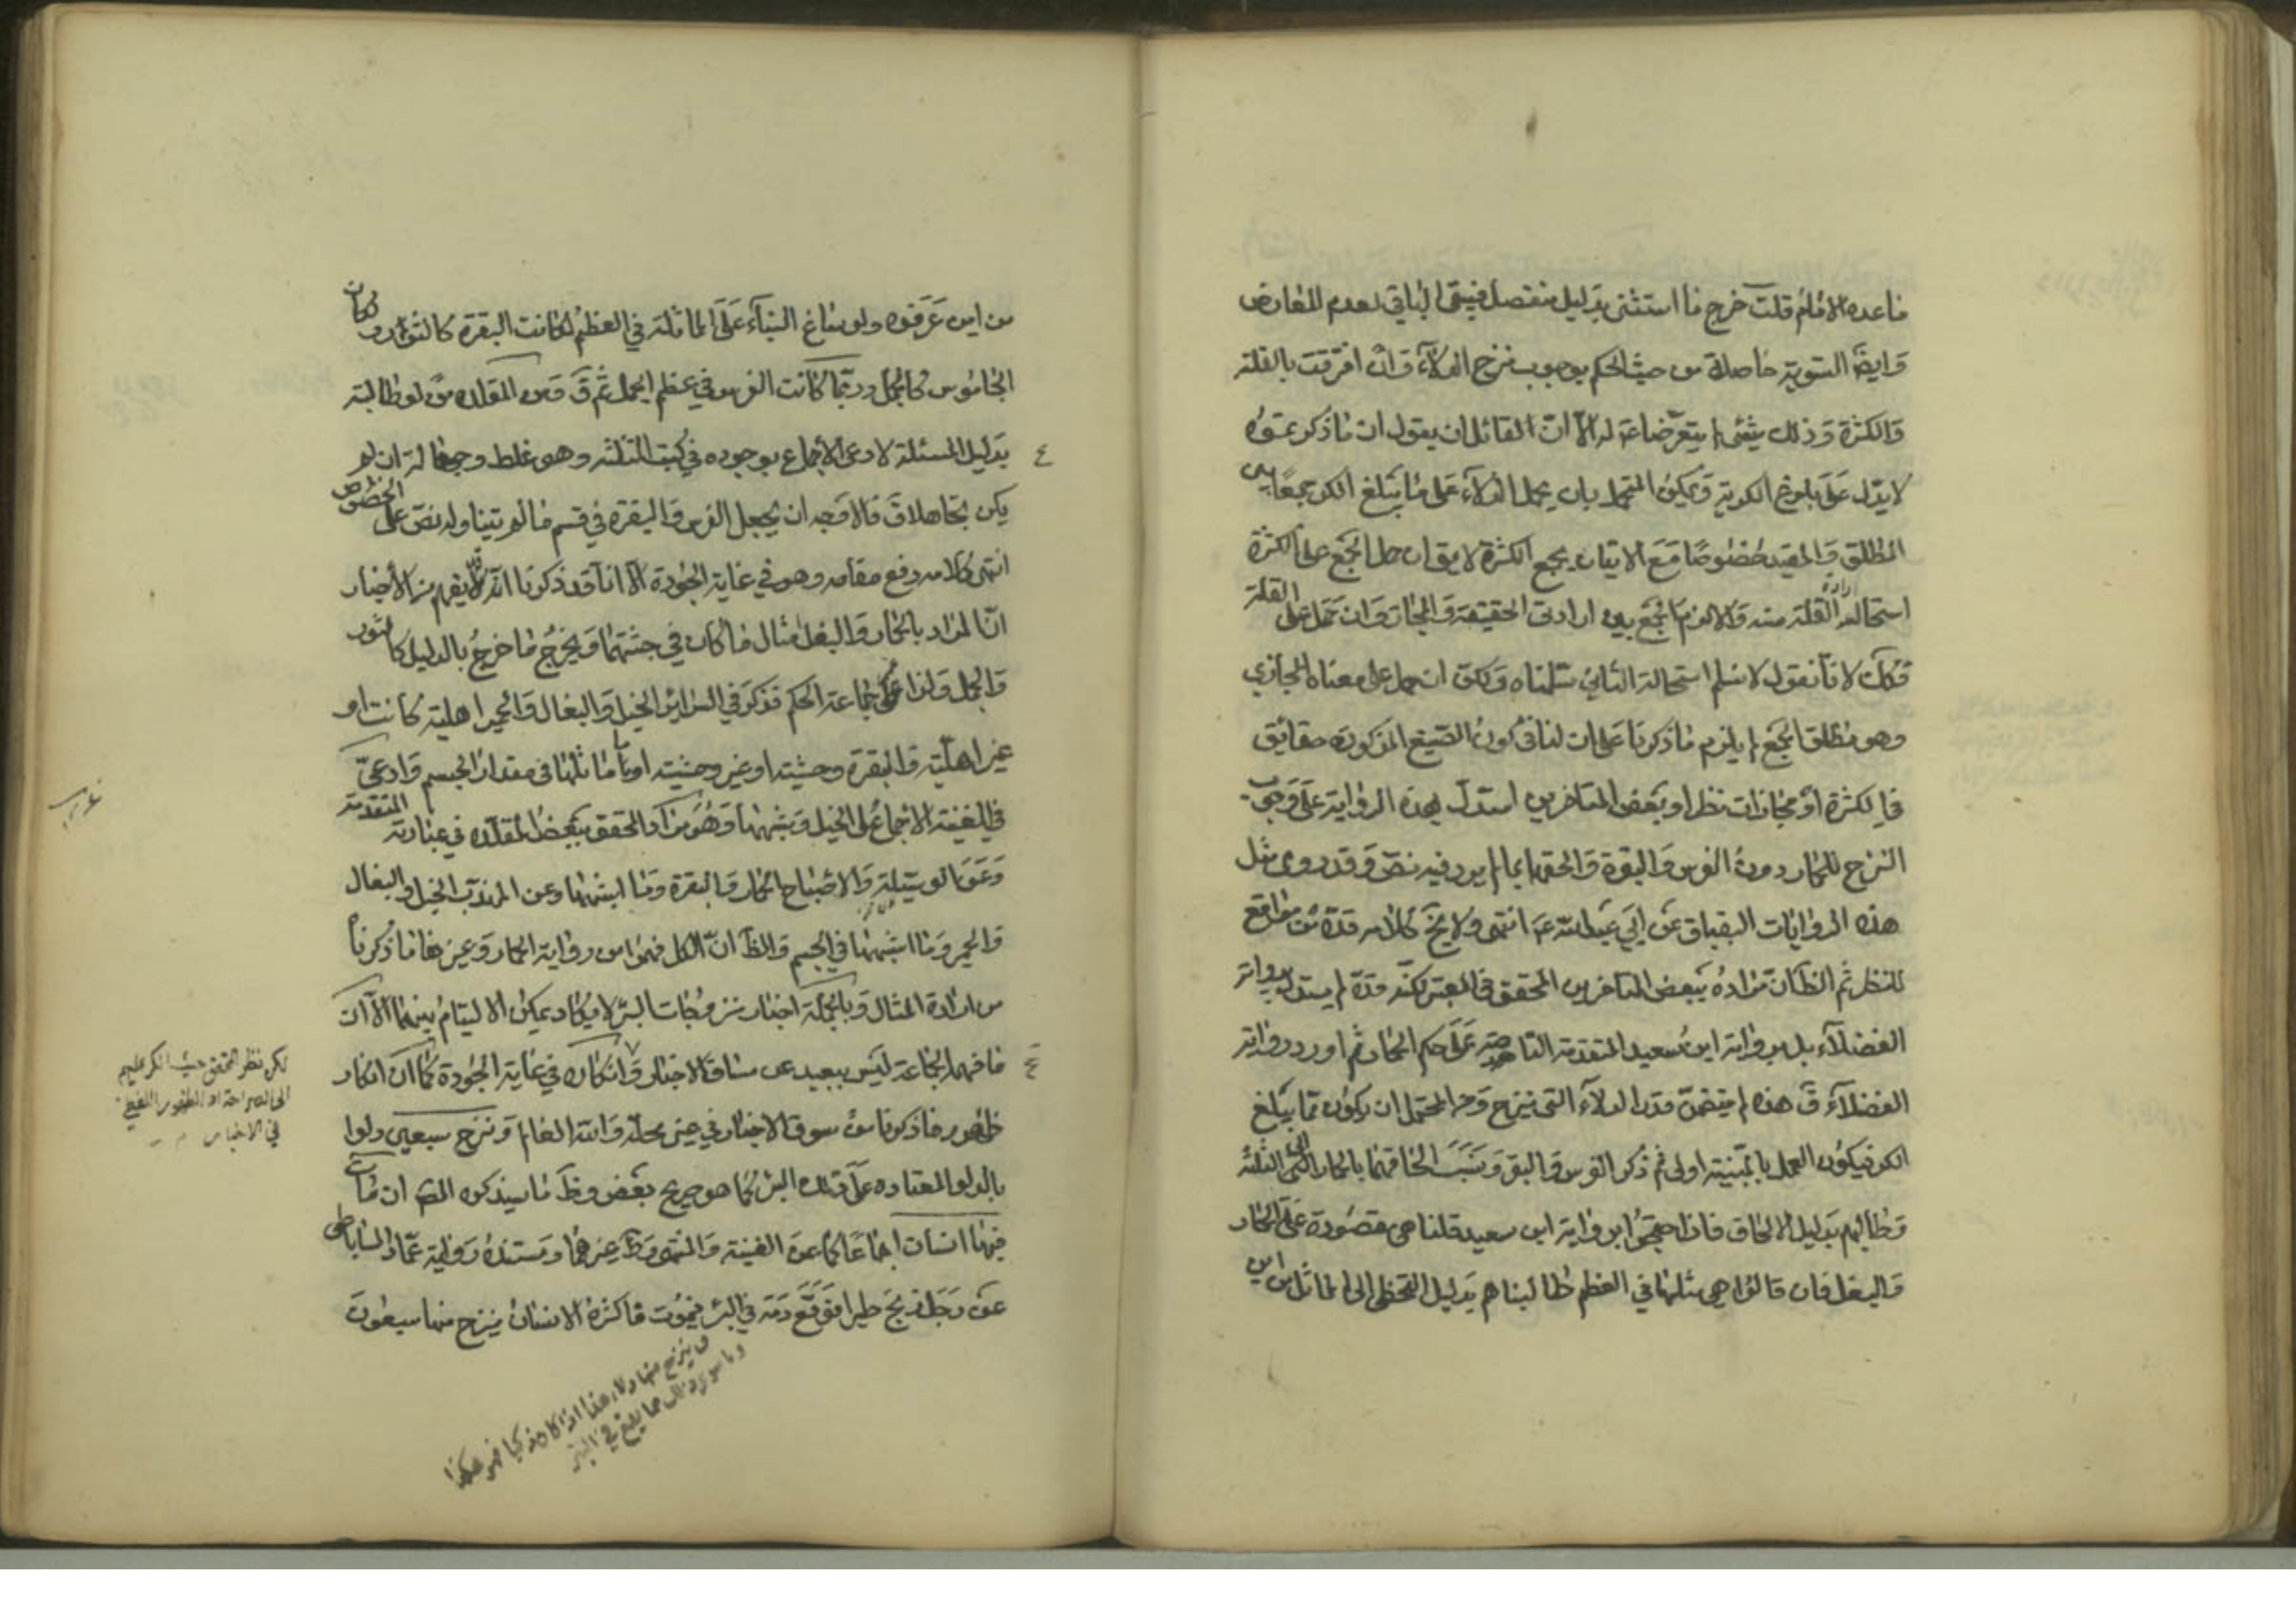 ما عده الامام قلت خرج ما استثنى بدليل منفصل فيبقى الباقي لعدم المعارض
وايضا التسوية حاصلة من حيث الحكم بوجوب نزح الدلاء وان افترقت بالقلة
والكثرة وذلك شيء لم يتعرضا عنه له الا ان القائل ان يقول ان ما ذكر عنوه
لا يدل على بلوغ الكرية ويمكن التحمل بان يحمل الدلاء على ما يبلغ الكر جمعا بين
المطلق والمقيد خصوصا مع الاتيان بجمع الكثرة لا يقال حمل الجمع على الكثرة
استحاله ارادة القلة منه والا لزم الجمع بين ارادتي الحقيقة والمجاز وان حمل على القلة
فكك لانا نقول لا نسلم استحالة الثاني سلمناه ولكن ان حمل على معناه المجازي
وهو مطلق الجمع لم يلزم ما ذكرنا على ان لنا في كون الصيغ المذكورة حقائق
في الكثرة او مجازات نظرا وبعض المتاخرين استدل بهذه الرواية على وجوب
النزح للحمار دون الفرس والبقرة والحقها بما لم يرد فيه نص وقد روى مثل
هذه الروايات البقباق عن ابي عبد الله ع انتهى ولا يخ كلامه قده من مواقع
للنظر ثم الظ ان مراده ببعض المتاخرين المحقق في المعتبر لكنه قده لم يستدل برواية
الفضلاء بل برواية ابن سعيد المتقدمة الناصة على حكم الحمار ثم اورد رواية
الفضلاء ق هذه لم يتضمن قدر الدلاء التي ينزح ومن المحتمل ان يكون مما يبلغ
الكر فيكون العمل بالمبينة اولى ثم ذكر الفرس والبقر ونسب الحاقهما بالحمار الى الثلثة
وطالبهم بدليل الالحاق فاذا احتجوا برواية ابن سعيد قلنا هي مقصورة على الحمار
والبغل فان قالوا هي مثلها في العظم طالبناهم بدليل التخطي الى المماثل من اين
من اين عرفوه ولو ساغ البناء على المماثلة في العظم لكانت البقرة كالثور ولكان
الجاموس كالجمل وربما كانت الفرس في عظم الجمل ثم ق ومن المقلدة من لو طالبته
بدليل المسئلة لادعى الاجماع بوجوده في كتب الثلثة وهو غلط وجهالة ان لم
يكن تجاهلا ق فالاوجه ان يجعل الفرس والبقرة في قسم ما لم يتناوله نص على الخصوص
انتهى كلامه رفع مقامه وهو في غاية الجودة الا انا قد ذكرنا انه يفهم من الاخبار
ان المراد بالحمار والبغل مثال ما كان في جثتهما ويخرج ما خرج بالدليل كالثور
والجمل ولذا عمم جماعة الحكم فذكر في السرائر الخيل والبغال والحمير اهلية كانت او
غير اهلية والبقرة وحشية او غير وحشية او ما ماثلها في مقدار الجسم وادعى
في الغنية الاجماع على الخيل وشبهها وهو مراد المحقق ببعض المقلدة في عبارته المتقدمة
وعن الوسيلة والاصباح الحمار والبقرة وما اشبهها وعن المهذب الخيل والبغال
والحمير وما اشبهها في الجسم والظ ان الكل فهموا من رواية الحمار وغيرها ما ذكرنا
من ارادة المثال وبالجملة اخبار نزوحات البئر لا يكاد يمكن الالتيام بينها الا ان
ما فهمه الجماعة ليس ببعيد عن مساق الاخبار وانكاره في غاية الجودة كما ان انكار
ظهور ما ذكرنا من سوق الاخبار في غير محله والله العالم ونزح سبعين دلوا
بالدلو المعتادة على تلك البئر كما هو صريح بعض وظ ما سيذكره المص ان مات
فيها انسان اجماعا كما عن الغنية والمنتهى وظ غيرهما ومستنده رواية عمار الساباطي
عن رجل ذبح طيرا فوقع دمه في البئر فيموت فاكثره الانسان ينزح منها سبعون
ق ينزح منها دلاء هذا اذا كان ذكيا فهو هكذا
وما سوى ذلك مما يقع في البئر
لكن نظر المحقق حيث انكر عليهم
الى الصراحة او الظهور اللفظي
في الاخبار